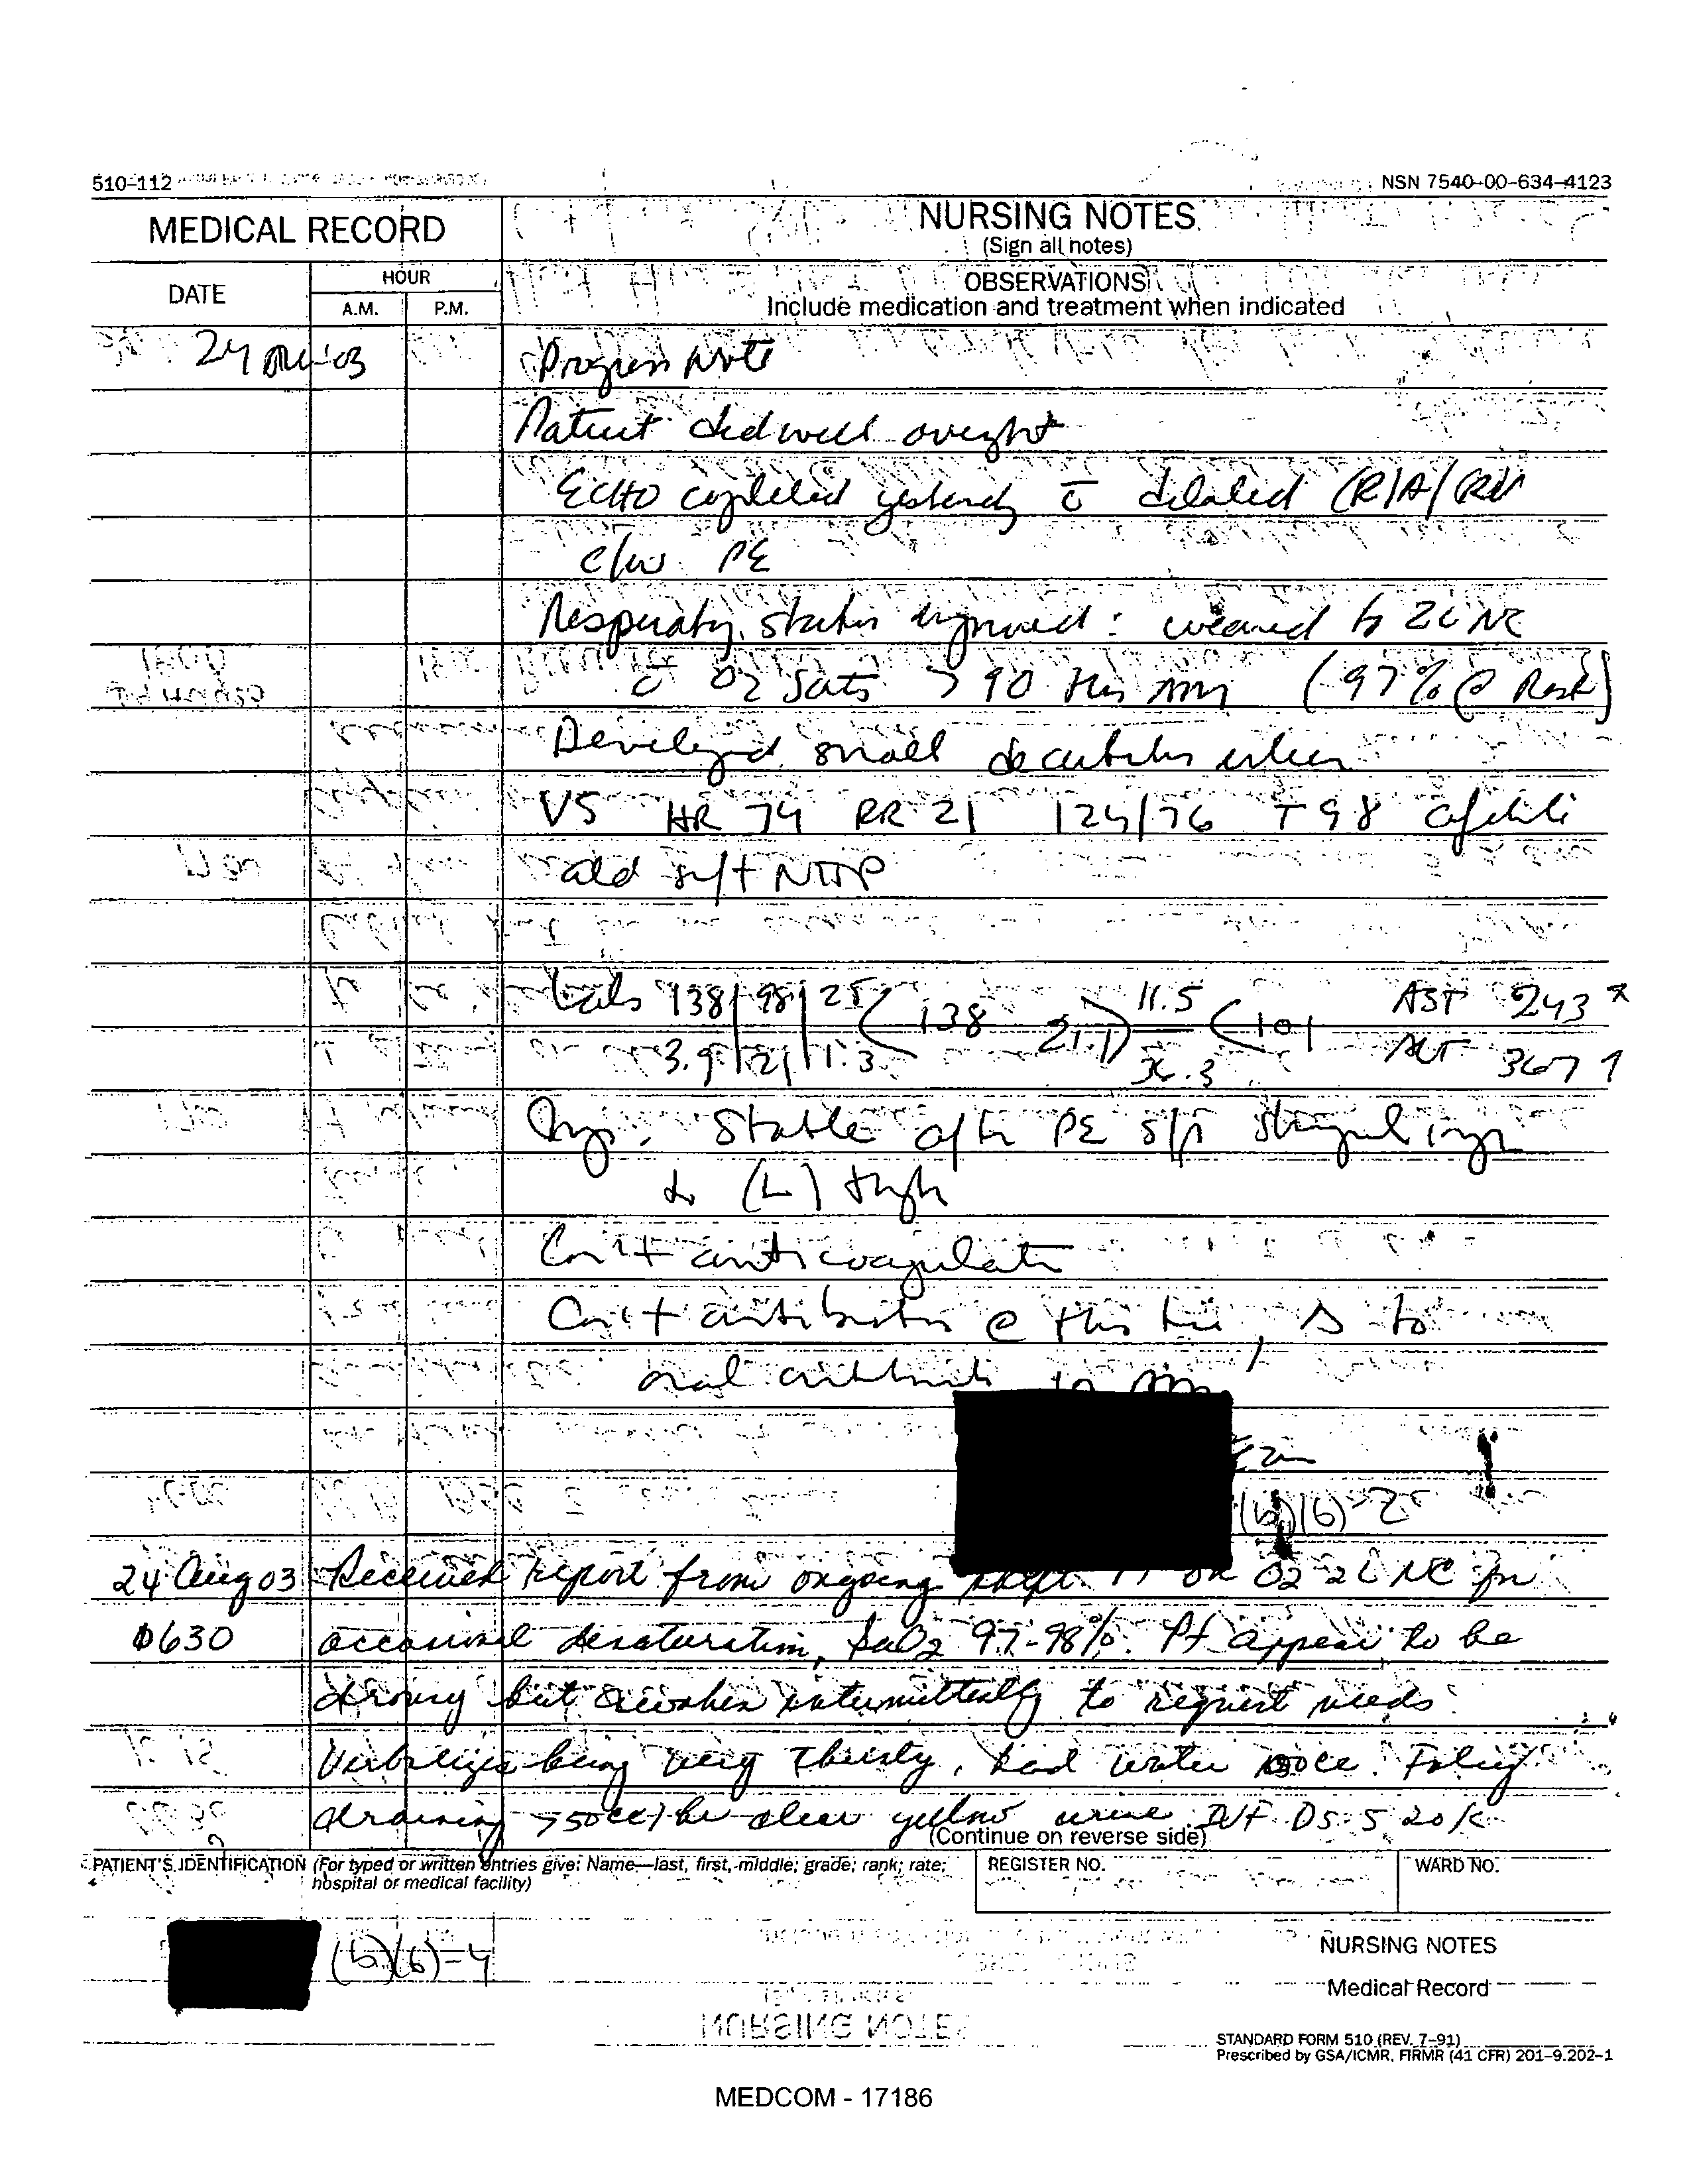 510-112
NSN 7540-00-634-4123
MEDICAL RECORD
NURSING NOTES
(Sign all notes)
DATE
HOUR
A.M.
P.M.
OBSERVATIONS
Include medication and treatment when indicated
24 Aug 03
Progress Note
Patient did well overnght
ECHO completed yesterday c̄ dilated (R)A/RV
c/w PE
Respiratory status improved: weaned to 2L NC
c̄ O2 sats >90 this AM (97% @ Rest)
Developed small decubitus ulcer
VS HR 74 RR 21 124/76 T 98 afebrile
abd soft NTTP
Labs 138 98 25 138 21.1 11.5 101 AST 243
3.9 21 1.3 36.3 ALT 367 ↑
Imp: Stable after PE s/p shrapnel injury
to (L) thigh
Con't anticoagulation
Con't antibiotics @ this time, Δ to
oral antibiotic in AM
(b)(6)-2
24 Aug 03 Received report from ongoing shift. Pt on O2 2L NC for
0630 occasional desaturation, SaO2 97-98%. Pt appear to be
drowsy but awakes intermittently to request needs.
Verbalizes being very thirsty, had water cc. Foley
draining >50cc/hr clear yellow urine. IVF D5 .5 20K
(Continue on reverse side)
PATIENT'S IDENTIFICATION (For typed or written entries give: Name—last, first, middle; grade; rank; rate;
hospital or medical facility)
REGISTER NO.
WARD NO.
(b)(6)-4
NURSING NOTES
Medical Record
STANDARD FORM 510 (REV. 7-91)
Prescribed by GSA/ICMR, FIRMR (41 CFR) 201-9.202-1
MEDCOM - 17186